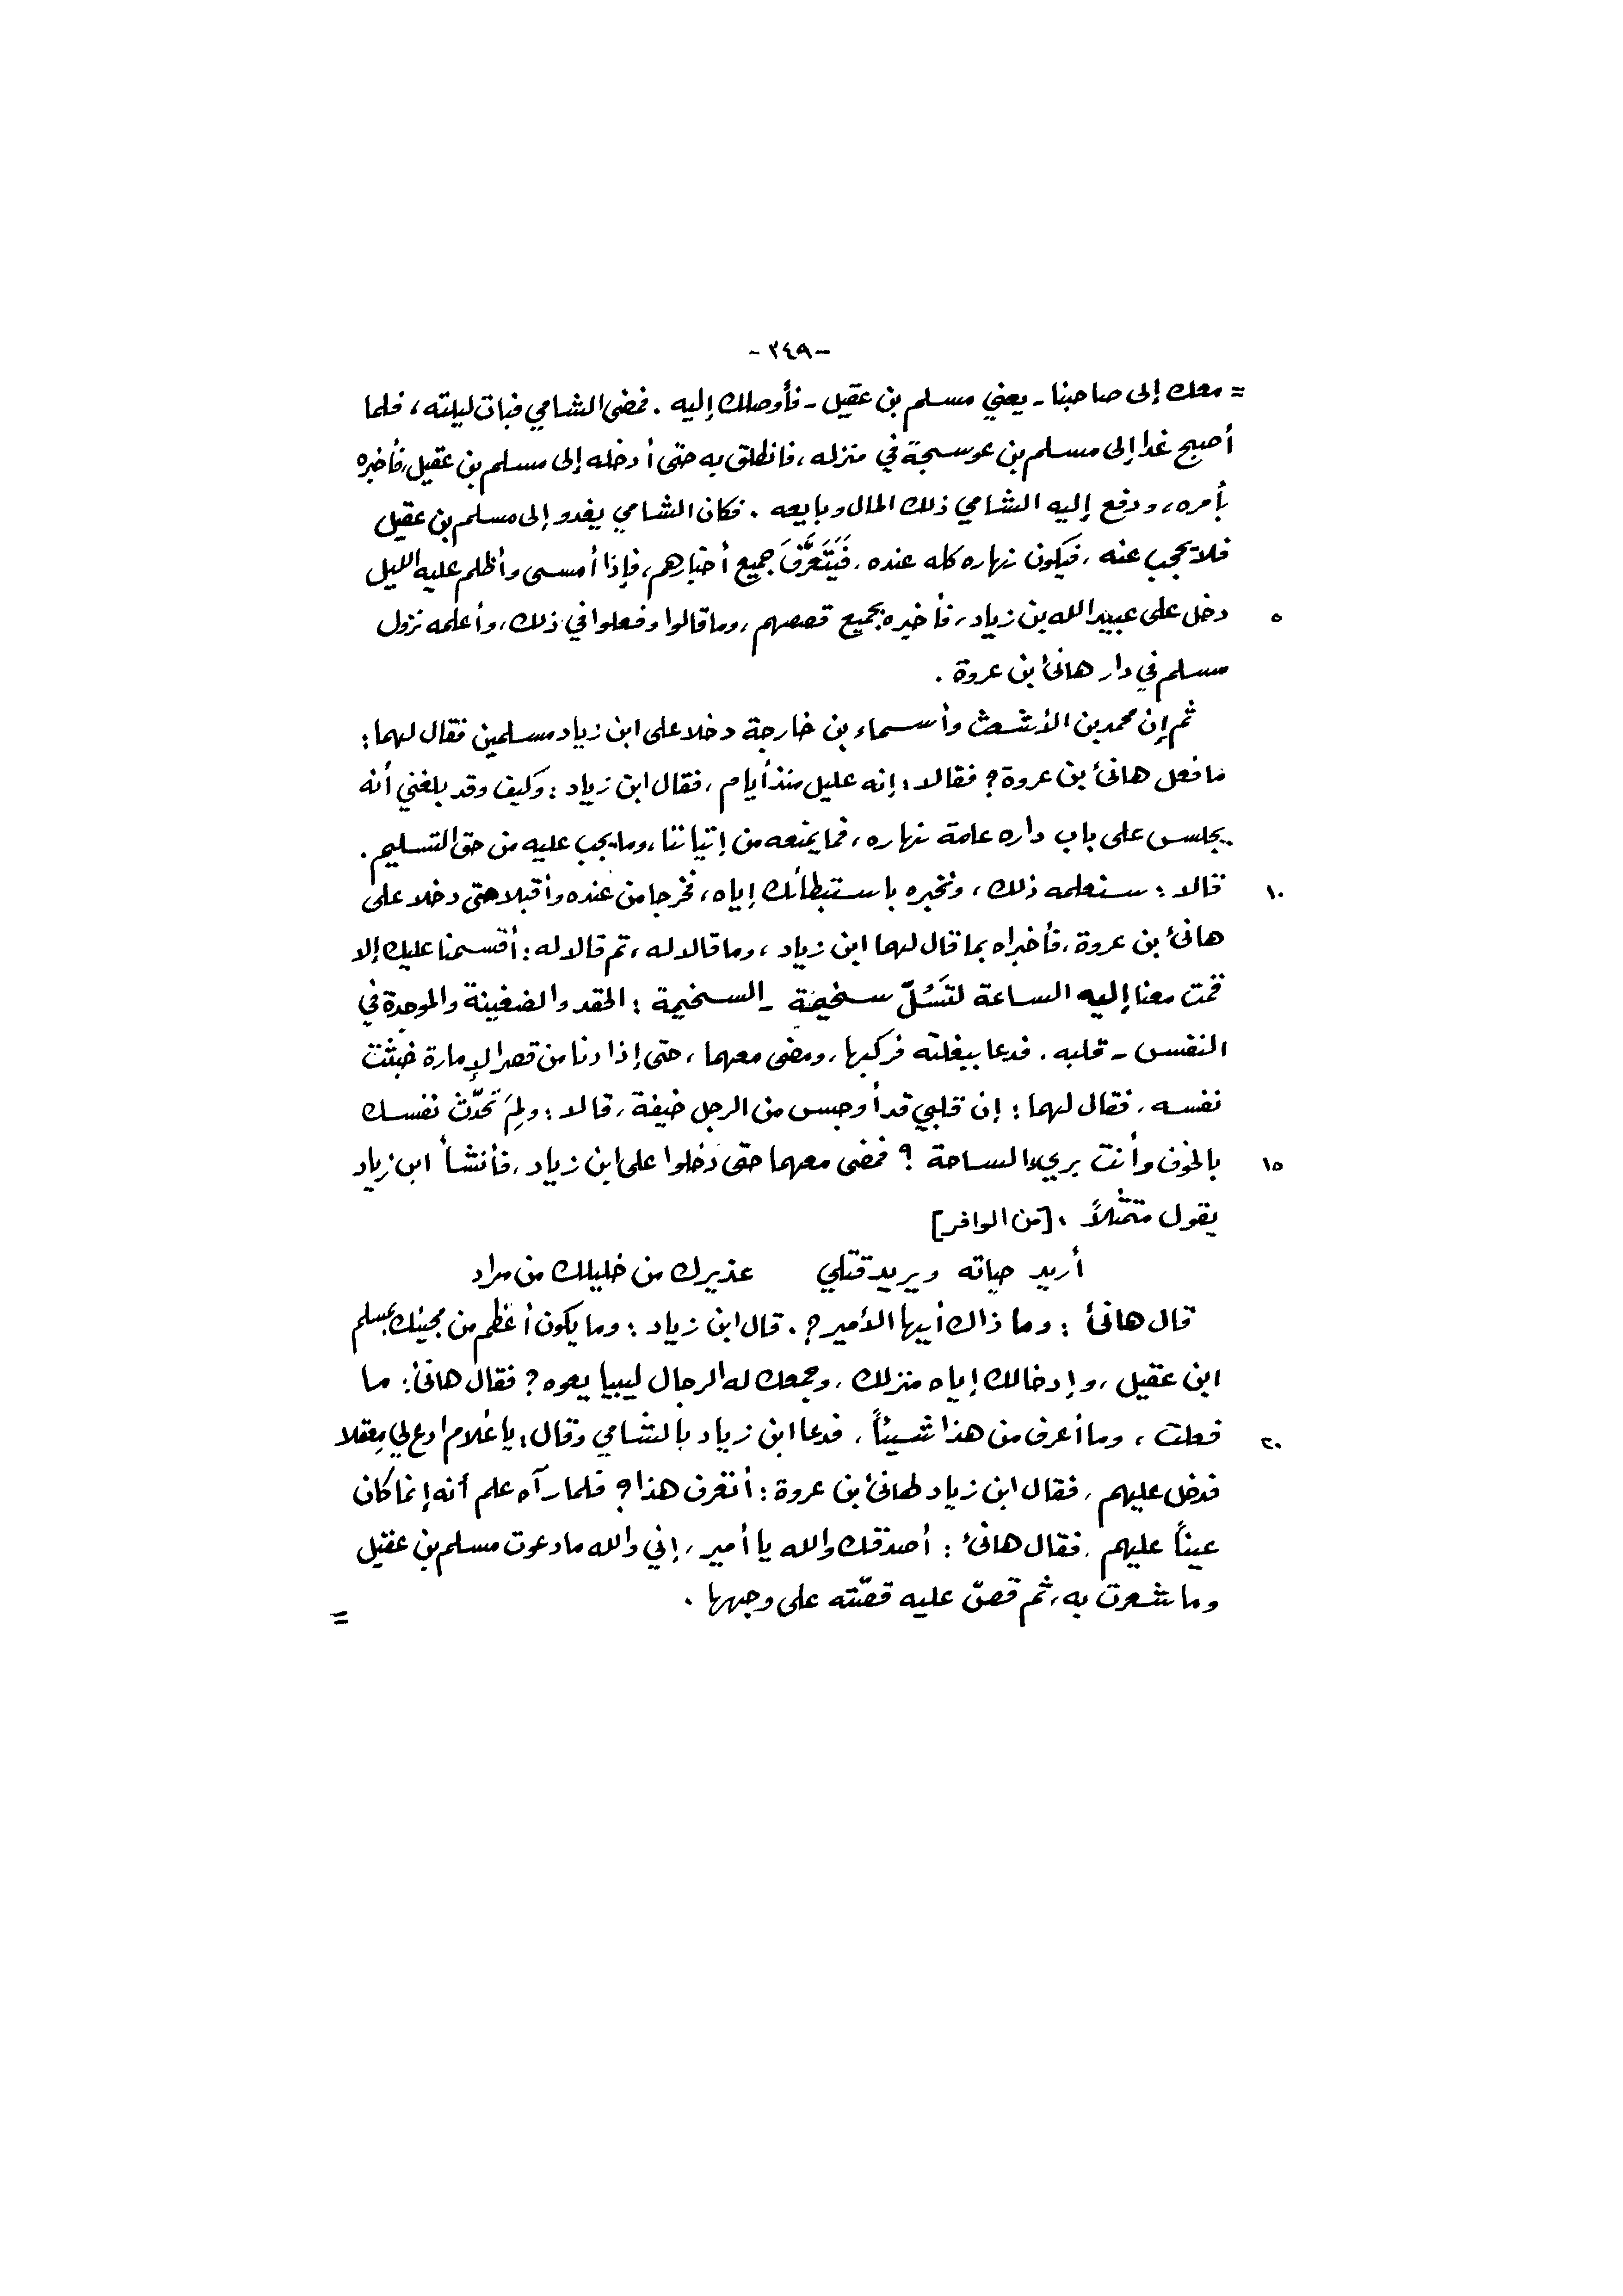 -٣٤٩-
= معك إلى صاحبنا - يعني مسلم بن عقيل - فأوصلك إليه . فمضى الشامي فبات ليلته ، فلما
أصبح غدا إلى مسلم بن عوسجة في منزله ، فانطلق به حتى أدخله إلى مسلم بن عقيل ، فأخبره
بأمره ، ودفع إليه الشامي ذلك المال وبايعه . فكان الشامي يغدو إلى مسلم بن عقيل
فلا يحجب عنه ، فيكون نهاره كله عنده ، فَيَتَعَرَّفَ جميع أخبارهم ، فإذا أمسى وأظلم عليه الليل
٥ دخل على عبيد الله بن زياد ، فأخبره بجميع قصصهم ، وما قالوا وفعلوا في ذلك ، وأعلمه نزول
مسلم في دار هانئ بن عروة .
ثم إن محمد بن الأشعث وأسماء بن خارجة دخلا على ابن زياد مسلمين فقال لهما :
ما فعل هانئ بن عروة ؟ فقالا : إنه عليل منذ أيام ، فقال ابن زياد : وكيف وقد بلغني أنه
يجلس على باب داره عامة نهاره ، فما يمنعه من إتياننا ، وما يجب عليه من حق التسليم .
١٠ قالا : سنعلمه ذلك ، ونخبره باستبطائك إياه ، فخرجا من عنده وأقبلا حتى دخلا على
هانئ بن عروة ، فأخبراه بما قال لهما ابن زياد ، وما قالا له ، ثم قالا له : أقسمنا عليك إلا
قمت معنا إليه الساعة لتَسُلّ سخيمة - السخيمة : الحقد والضغينة والموجدة في
النفس - قلبه . فدعا ببغلته فركبها ، ومضى معهما ، حتى إذا دنا من قصر الإمارة خبثت
نفسه ، فقال لهما : إن قلبي قد أوجس من الرجل خيفة ، قالا : ولِمَ تحدّث نفسك
١٥ بالخوف وأنت بريء الساحة ؟ فمضى معهما حتى دخلوا على ابن زياد ، فأنشأ ابن زياد
يقول متمثلاً : [من الوافر]
أريد حياته ويريد قتلي عذيرك من خليلك من مراد
قال هانئ : وما ذاك أيها الأمير ؟ . قال ابن زياد : وما يكون أعظم من مجيئك بمسلم
ابن عقيل ، وإدخالك إياه منزلك ، وجمعك له الرجال ليبايعوه ؟ فقال هانئ : ما
٢٠ فعلت ، وما أعرف من هذا شيئاً ، فدعا ابن زياد بالشامي وقال : يا غلام ادع لي مِعقلا
فدخل عليهم ، فقال ابن زياد لهانئ بن عروة : أتعرف هذا ؟ فلما رآه علم أنه إنما كان
عيناً عليهم ، فقال هانئ : أصدقك والله يا أمير ، إني والله ما دعوت مسلم بن عقيل
وما شعرت به ، ثم قصّ عليه قصّته على وجهها .
=